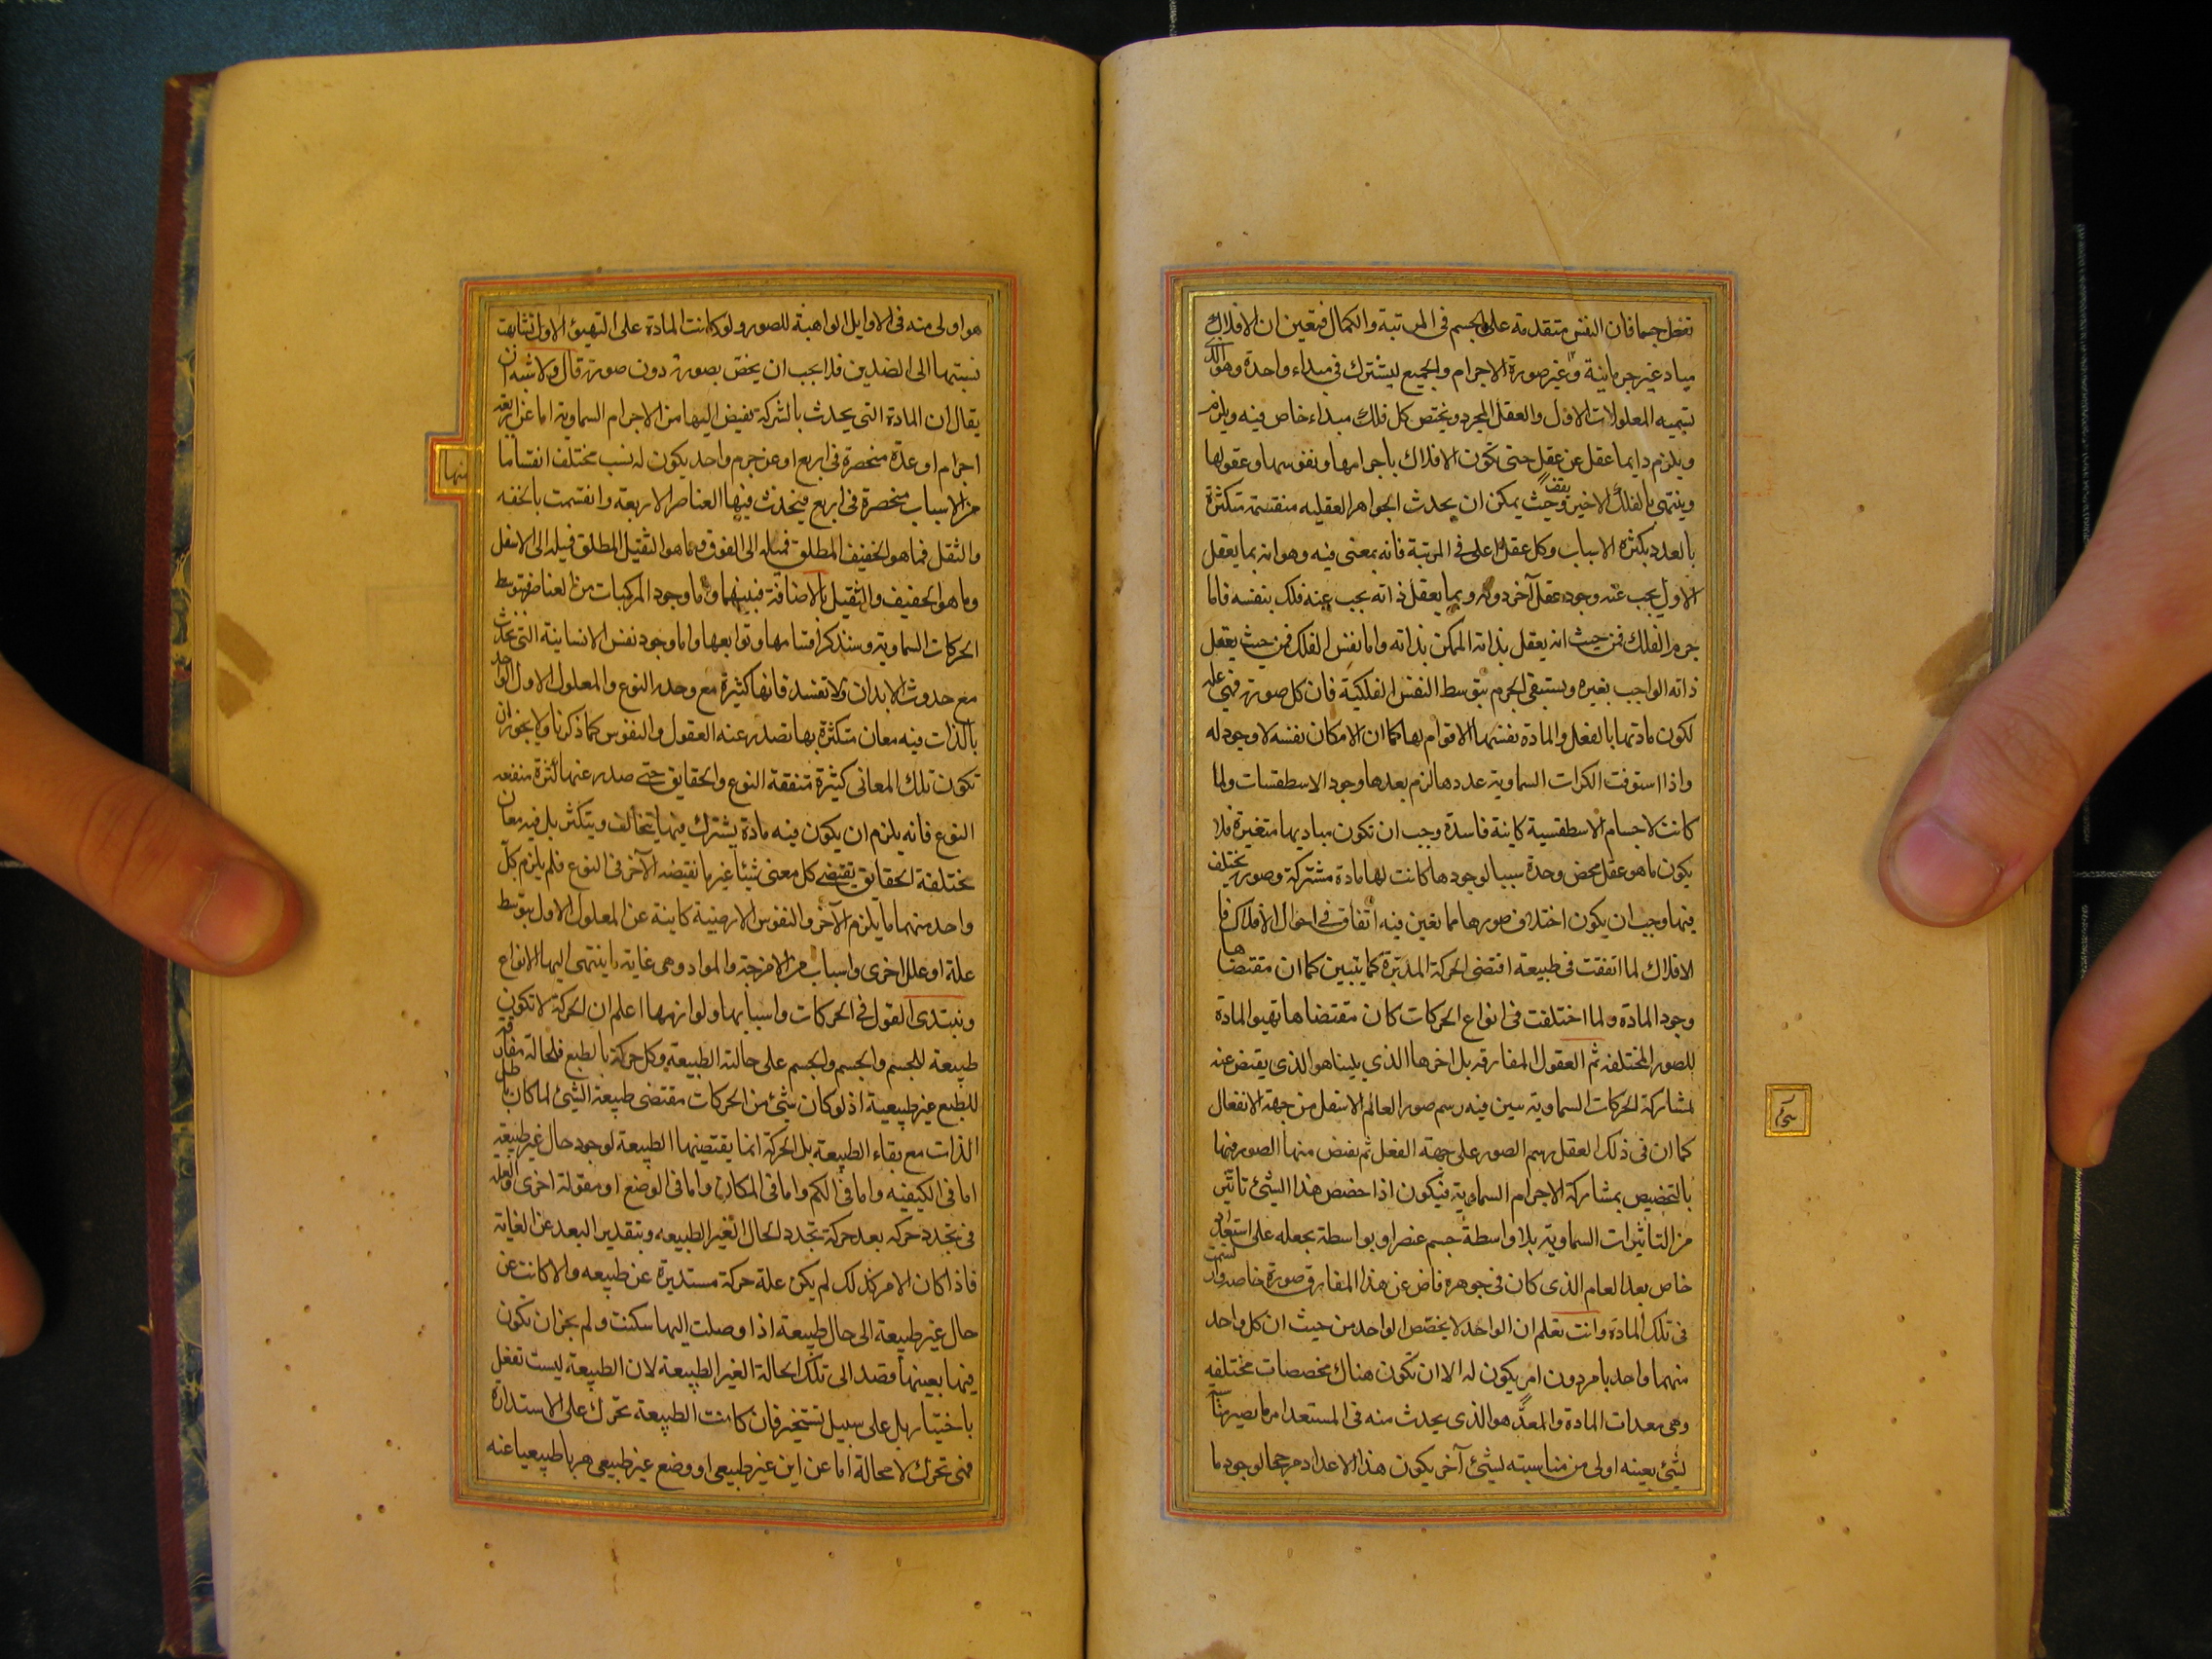 تفعل جسما فان النفس متقدمة على الجسم فى المرتبة والكمال فتعين ان الافلاك
مباد غير جرمانية وغير صورة الاجرام والجميع يشترك فى مبداء واحدة وهو الذى
نسميه المعلولات الاول والعقل المجرد ويختص كل فلك مبداء خاص فيه ويلزم
ويلزم دايما عقل عن عقل حتى تكون الافلاك باجرامها ونفوسها وعقولها
وينتهى بالفلك الاخير ويقف حيث يمكن ان يحدث الجواهر العقليه منقسمة متكثرة
بالعدد بكثرة الاسباب وكل عقل اعلى فى المرتبة فانه بمعنى فيه وهو انه بما يعقل
الاول يجب عنه وجود عقل آخر دونه وبما يعقل ذاته يجب عنه فلك بنفسه فاما
جرم الفلك فمن حيث انه يعقل بذاته الممكن بذاته واما نفس الفلك فمن حيث يعقل
ذاته الواجب بغيره ويستبقى الجرم بتوسط النفس الفلكية فان كل صورة فهى علة
لكون مادتها بالفعل والمادة بنفسها لا قوام لها كما ان الامكان نفسه لا وجود له
واذا استوفت الكرات السماوية عددها لزم بعدها وجود الاسطقسات ولما
كانت الاجسام الاسطقسية كاينة فاسدة وجب ان تكون مباديها متغيرة فلا
يكون ما هو عقل محض وحدة سببا لوجودها كانت لها مادة مشتركة وصور تختلف
فيها وجب ان يكون اختلاف صورها مما تعين فيه اتفاق فى احوال الافلاك فا
الافلاك لما اتفقت فى طبيعة اقتضى الحركة المستديرة كما يتبين كما ان مقتضاها
وجود المادة ولما اختلفت فى انواع الحركات كان مقتضاها تهيوء المادة
للصور المختلفه ثم العقول المفارقه بل اخرها الذي يلينا هو الذى يفيض عنه
بمشاركة الحركات السماوية شىء فيه رسم صور العالم الاسفل من جهة الانفعال
كما ان فى ذلك العقل رسم الصور على جهة الفعل ثم يفيض منها الصور فيها
بالتخصيص بمشاركة الاجرام السماوية فيكون اذا خصص هذا الشئ تاثير
من التاثيرات السماوية بلا واسطة جسم عنصرا وبواسطة يجعله على استعداد
خاص بعد العام الذى كان فى جوهره فاض عن هذا المفارق صورة خاصة وارتسمت
فى تلك المادة وانت تعلم ان الواحد لا يخصص الواحد من حيث ان كل واحد
منهما واحد بامر دون امر يكون له الا ان تكون هناك مخصصات مختلفه
وهى معدات المادة والمعد هو الذى يحدث منه فى المستعد امر ما تصير مناسبته
لشئ بعينه اولى من مناسبته لشئ آخر يكون هذا الاعداد مرجحا لوجود ما
هو اولى منه فى الاوايل الواهبة للصور ولو كانت المادة على التهيوء الاول تشابهت
نسبتها الى الضدين فلا يجب ان يختص بصورة دون صورة قال والاشبه ان
يقال ان المادة التى يحدث بالشركة يفيض اليها من الاجرام السماوية اما عن اربعة
اجرام او عدة منحصرة فى اربع او عن جرم واحد يكون له نسب مختلف انقساما
من الاسباب منحصرة فى اربع فيحدث فيها العناصر الاربعة وانقسمت بالخفه
منها
والثقل فما هو الخفيف المطلق فميله الى الفوق وما هو الثقيل المطلق فميله الى الاسفل
وما هو الخفيف والثقيل بالاضافة فبينهما واما وجود المركبات من العناصر فبتوسط
الحركات السماوية وسنذكر اقسامها وتوابعها واما وجود نفس الانسانية التى تحدث
مع حدوث الابدان ولا تفسد فانها كثيرة مع وحدة النوع والمعلول الاول الواحد
بالذات فيه معان متكثرة بها تصدر عنه العقول والنفوس كما ذكرنا ولا يجوز ان
تكون تلك المعانى كثيرة متفقة النوع والحقايق حتى صدر عنها كثرة متفقه
النوع فانه يلزم ان يكون فيه مادة يشترك فيها تتخالف ويتكثر بل فيه معان
مختلفة الحقايق يقتضى كل معنى شيئا غير ما تقيضه الآخر فى النوع فلم يلزم كل
واحد منهما ما يلزم الآخر والنفوس الارضية كاينة عن المعلول الاول بتوسط
علة او علل اخرى واسباب من الامزجة والمواد وهى غاية ما ينتهى اليها الانواع
ونبتدى القول فى الحركات واسبابها ولوازمها اعلم ان الحركة لا تكون
طبيعة للجسم والجسم على حالته الطبيعة وكل حركة بالطبع فلحالة مفارقة
للطبع غير طبيعية اذ لو كان شئ من الحركات مقتضى طبيعة الشئ لما كان باطل
الذات مع بقاء الطبيعة بل الحركة انما يقتضيها الطبيعة لوجود حال غير طبيعية
اما فى الكيفيه واما فى الكم واما فى المكان واما فى الوضع او مقولة اخرى والعلة
فى تجدد حركه بعد حركة تجدد الحال الغير الطبيعه وبتقدير البعد عن الغاية
فاذا كان الامر كذلك لم يكن علة حركة مستديرة عن طبيعه والا كانت عن
حال غير طبيعة الى حال طبيعة اذا وصلت اليها سكنت ولم يجز ان تكون
فيها بعينها قصد الى تلك الحالة الغير الطبيعة لان الطبيعة ليست تفعل
باختيار بل على سبيل تسخير فان كانت الطبيعة تحرك على الاستدارة
فهى تحرك لا محالة اما عن اين غير طبيعى او وضع غير طبيعى هربا طبيعيا عنه